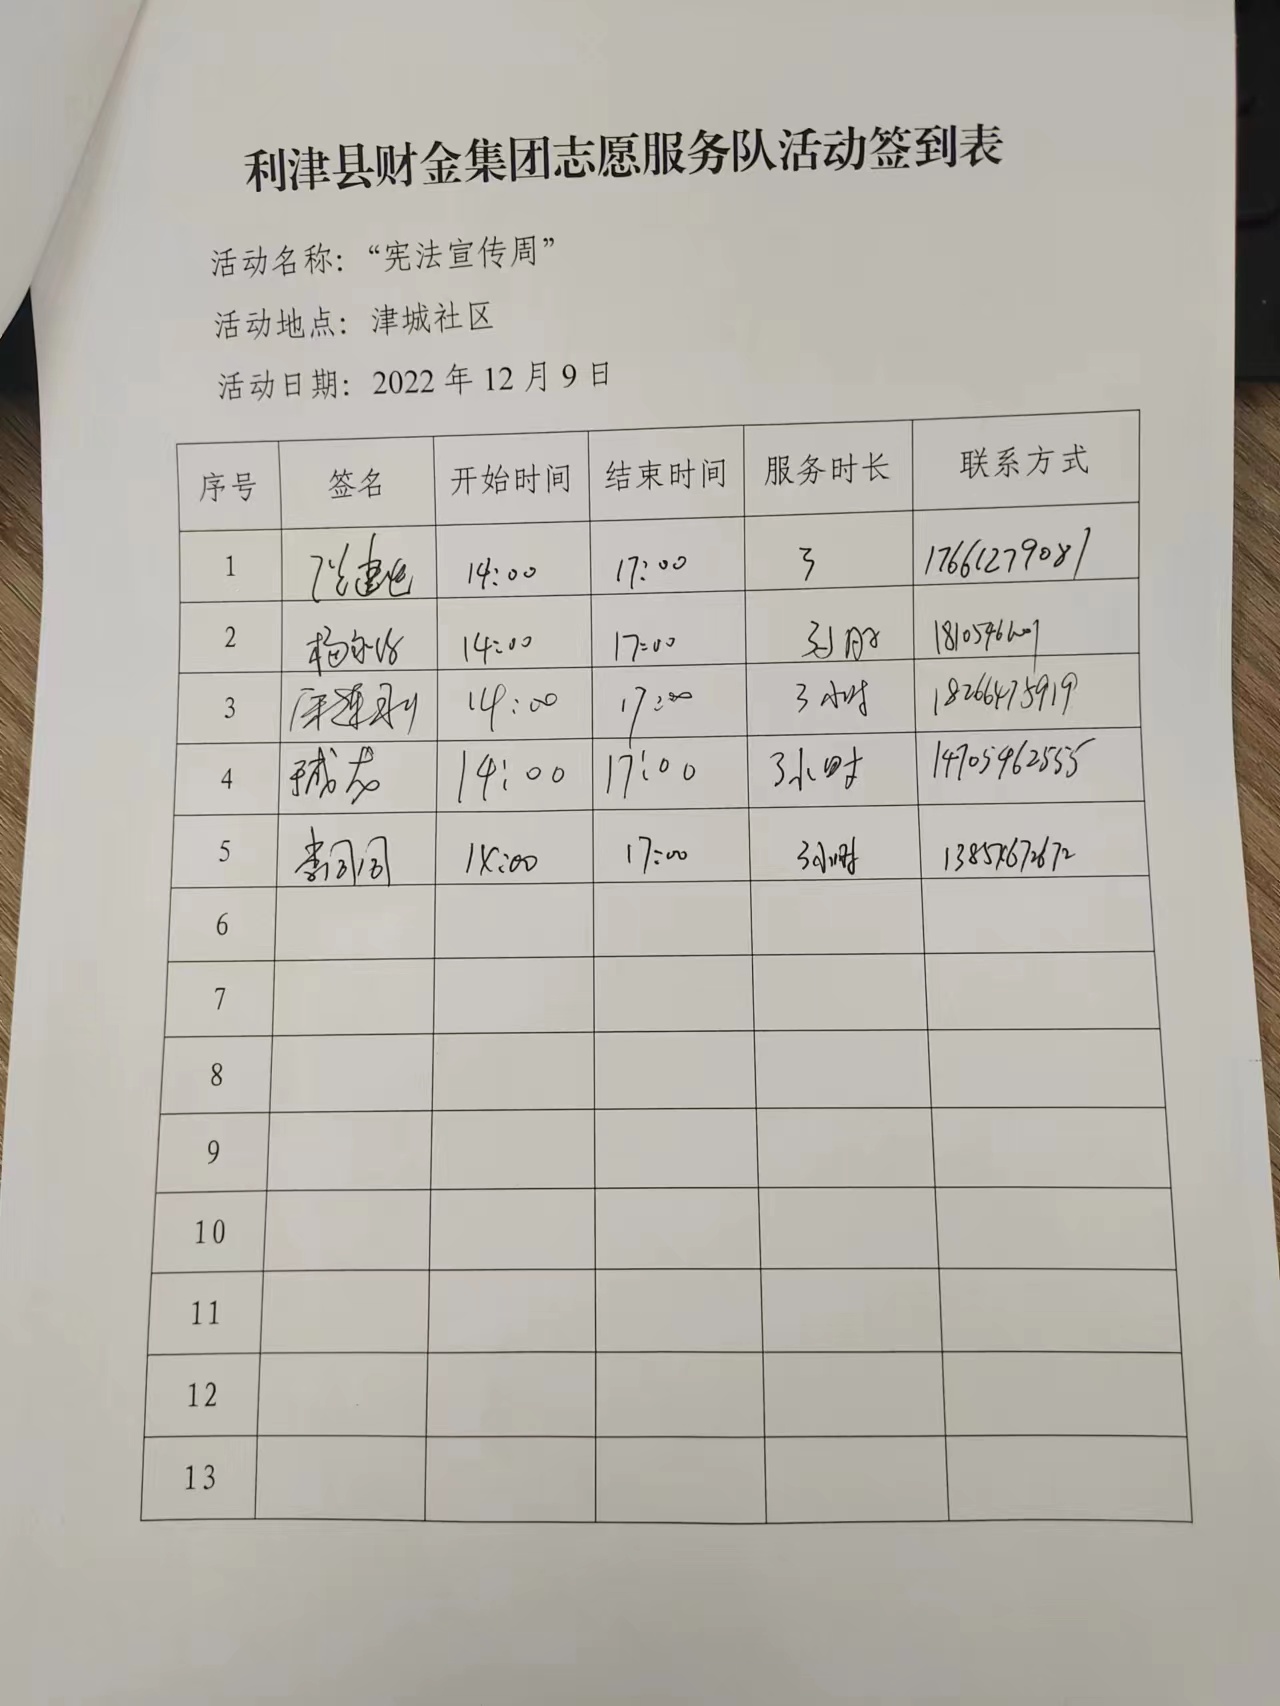 利津县财金集团志愿服务队活动签到表
活动名称：“宪法宣传周”
活动地点：津城社区
活动日期：2022年12月9日
序号 签名 开始时间 结束时间 服务时长 联系方式
1 14:00 17:00 3 17661279087
2 14:00 17:00 3小时
3 14:00 17:00 3小时 18266475919
4 14:00 17:00 3小时 14705462555
5 李闪闪 14:00 17:00 3小时
6
7
8
9
10
11
12
13